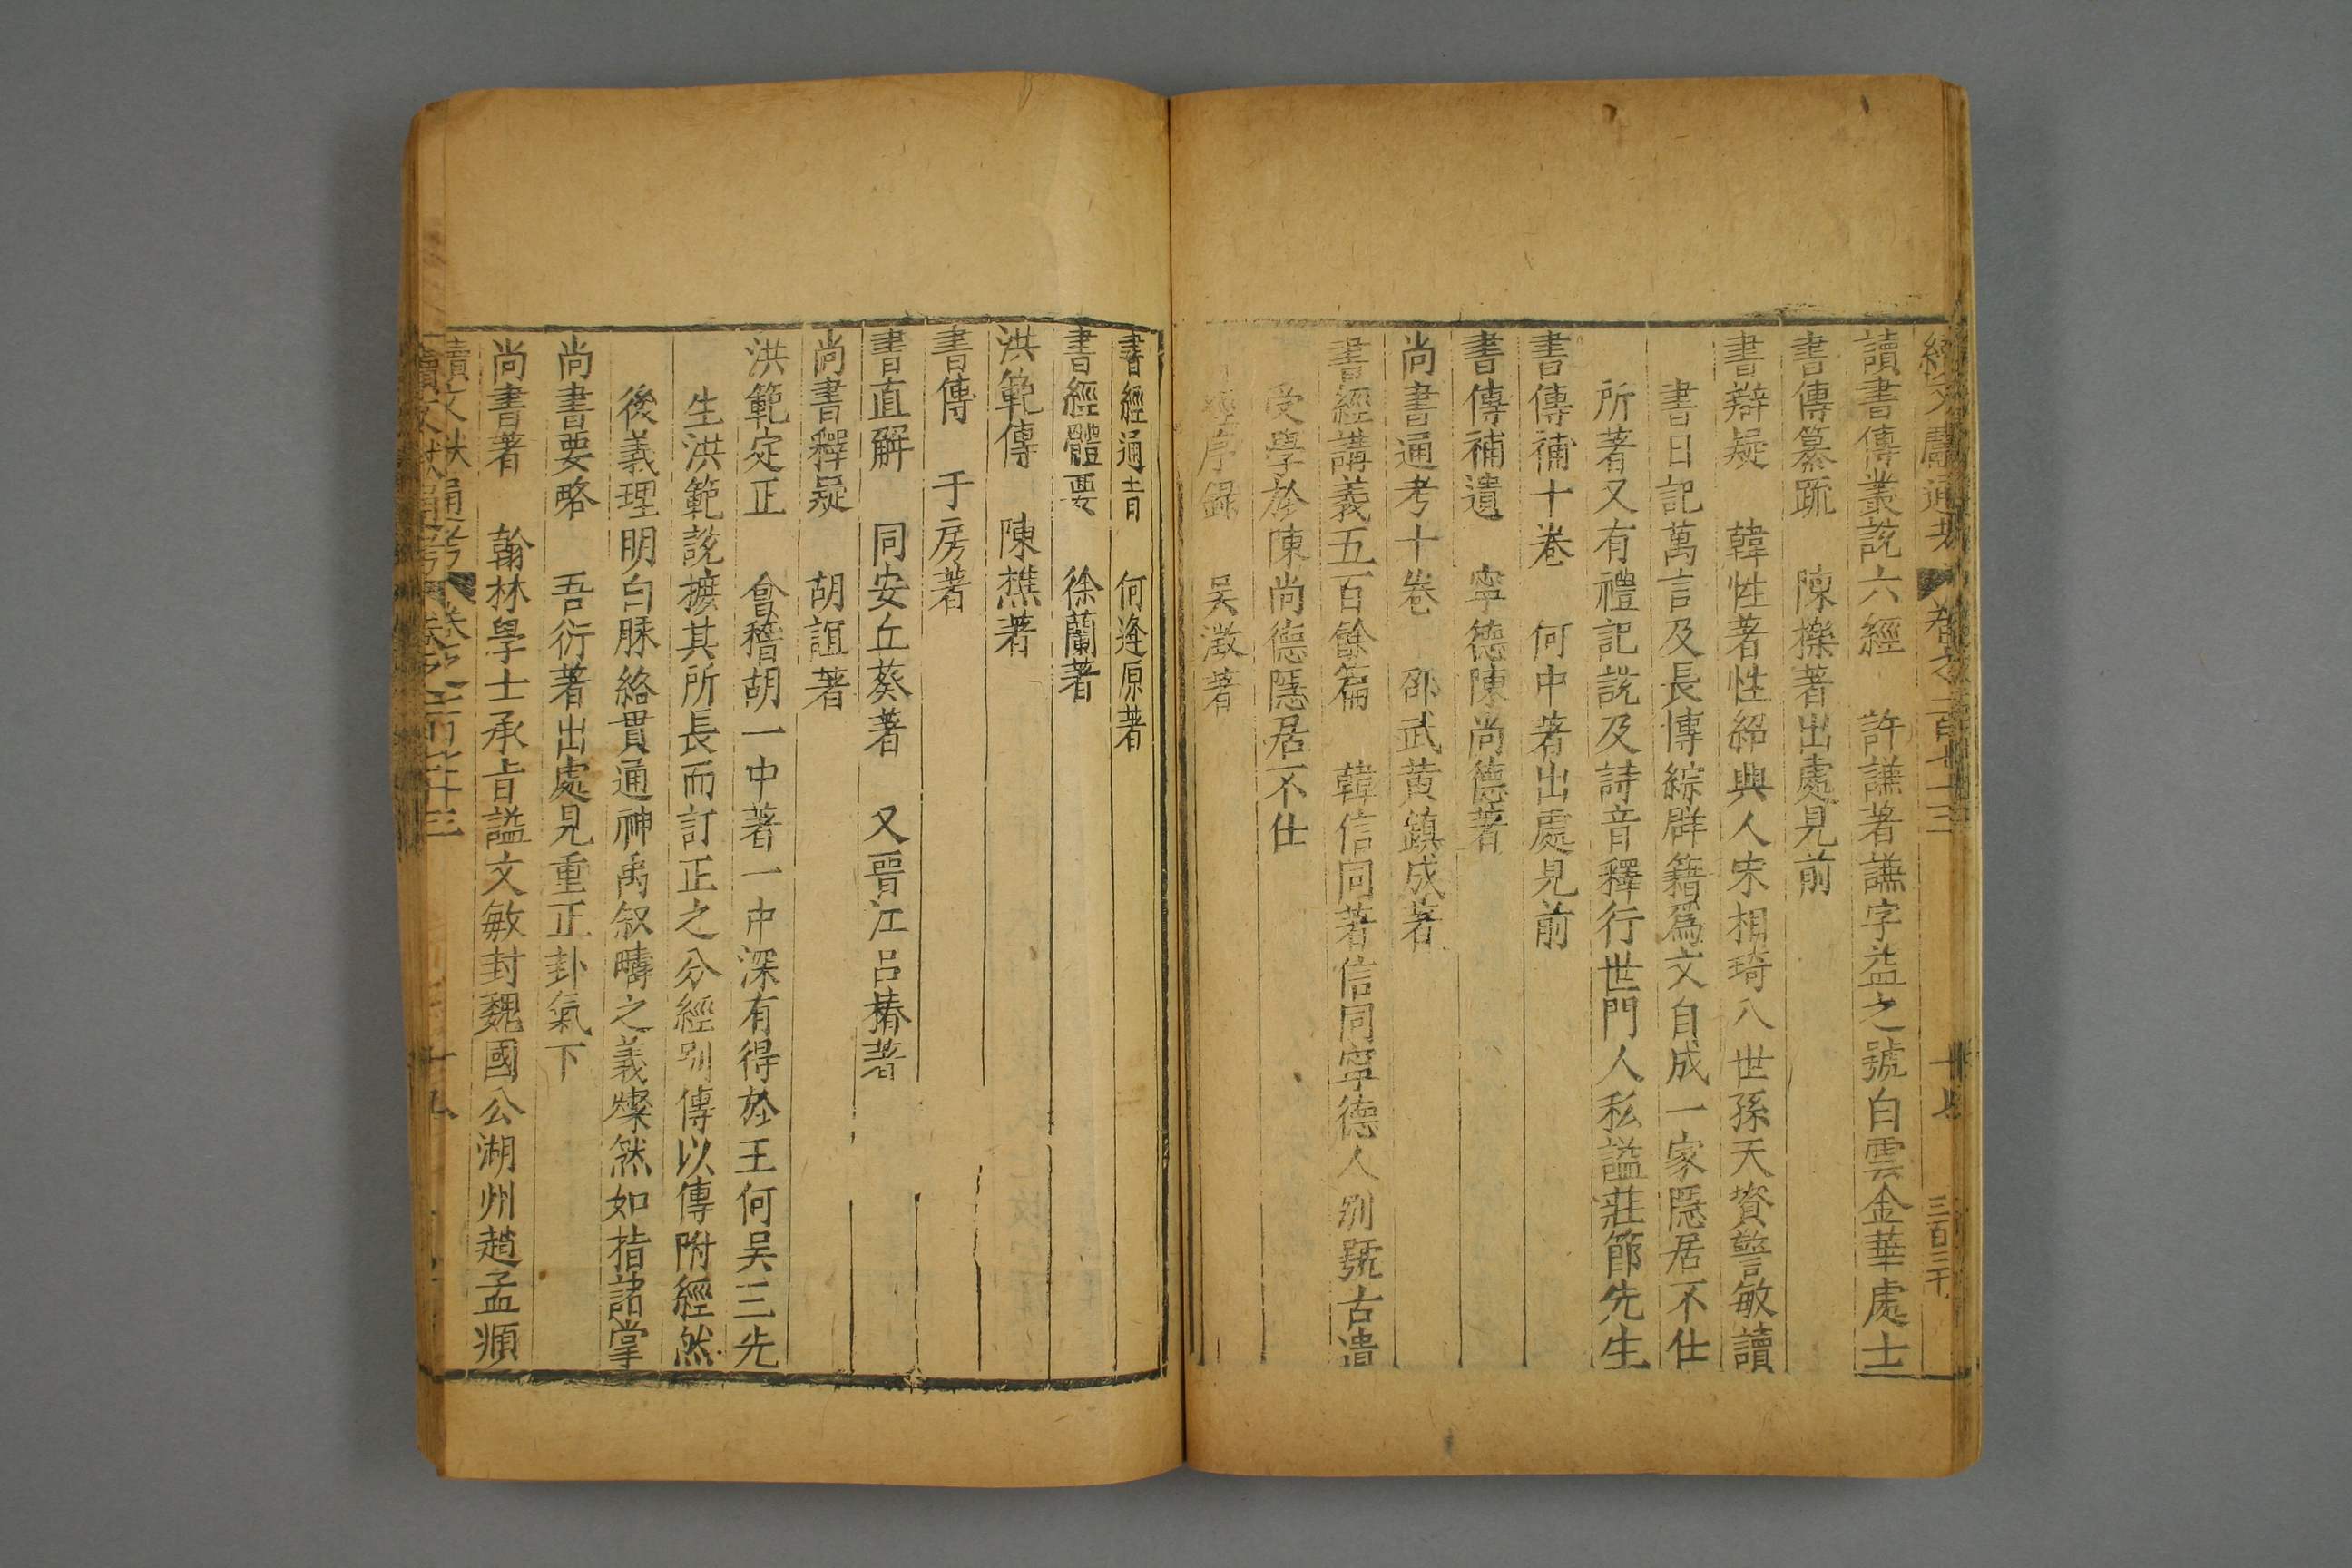 讀書傳叢說六經　許謙著謙字益之號白雲金華處士
書傳纂䟽　陳櫟著出處見前
書辯疑　韓性著性紹興人宋相琦八世孫天資警敏讀
書日記萬言及長博綜群籍爲文自成一家隱居不仕
所著又有禮記說及詩音釋行世門人私謚莊節先生
書傳補十卷　何中著出處見前
書傳補遺　寧德陳尚德著
尚書通考十卷　邵武黄鎮成著
書經講義五百餘篇　韓信同著信同寧德人别號古遺
受學於陳尚德隱居不仕
經序録　吴澂著
書經通旨　何逄原著
書經體要　徐蘭著
洪範傳　陳樵著
書傳　于房著
書直解　同安丘葵著　又晋江吕椿著
尚書釋疑　胡誼著
洪範定正　會稽胡一中著一中深有得於王何吴三先
生洪範說擴其所長而訂正之分經别傳以傳附經然
後義理明白脉絡貫通神禹叙疇之義燦然如指諸掌
尚書要略　吾衍著出處見重正卦氣下
尚書著　翰林學士承旨謚文敏封魏國公湖州趙孟頫